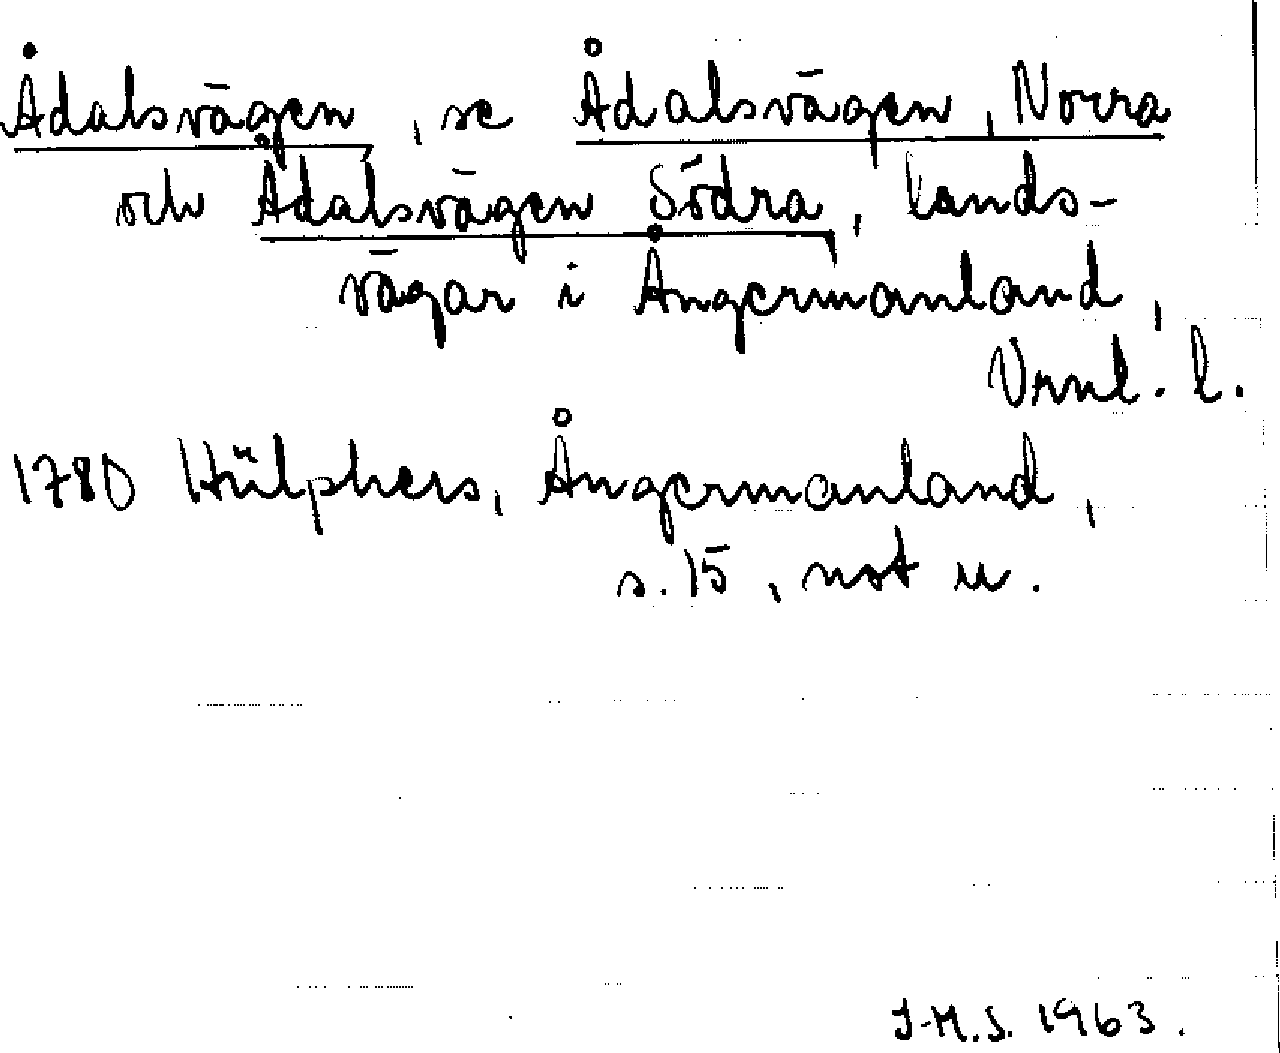 Ådalsvägen, se Ådalsvägen, Norra
och Ådalsvägen Södra, lands-
vägar i Ångermanland,
Vrnl. l.
1780 Hülphers, Ångermanland,
s. 15, not u.
J-M.S. 1963.